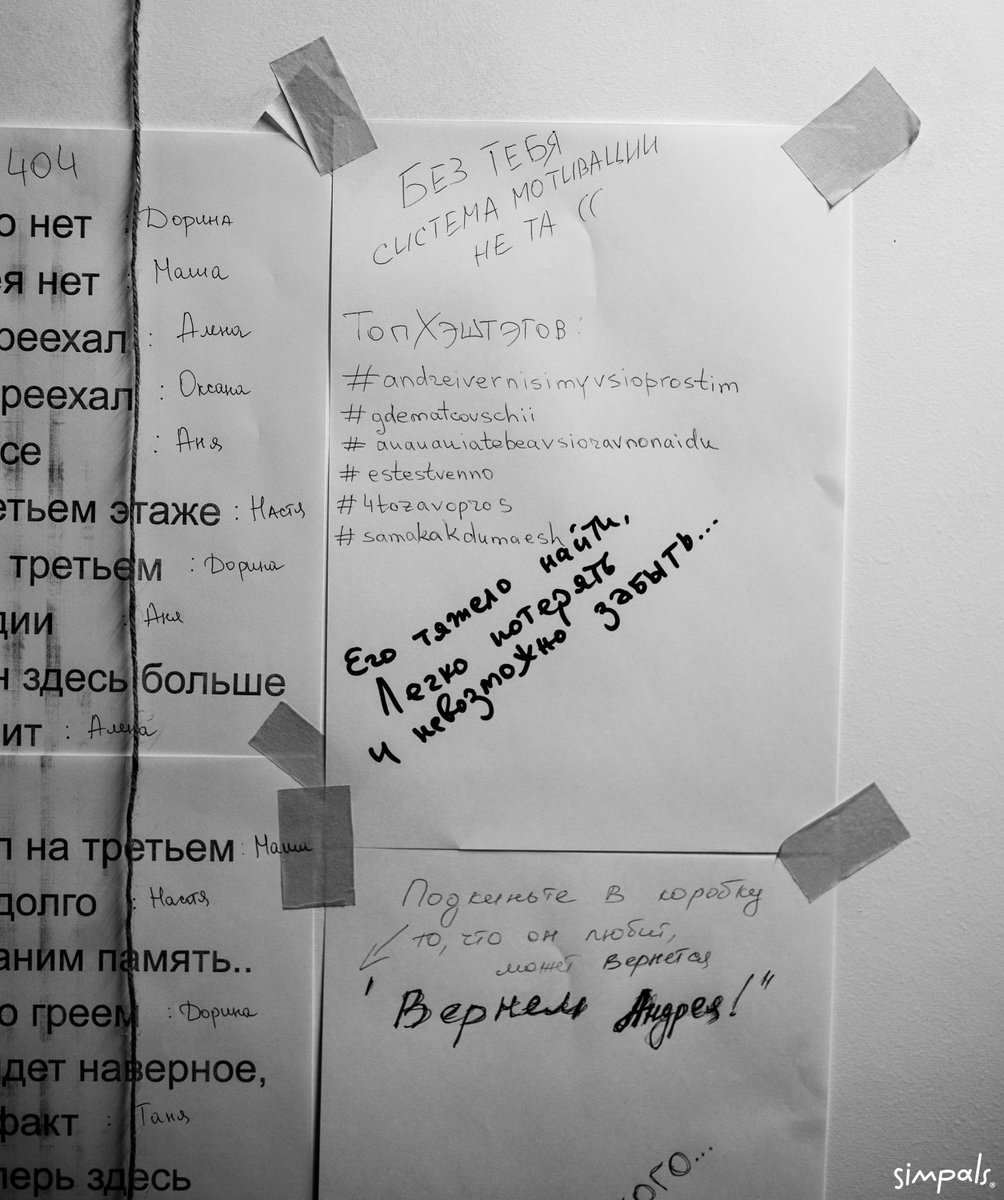 404
о нет : Дорина
я нет : Маша
реехал : Алена
реехал : Оксана
се : Аня
етьем этаже : Настя
третьем : Дорина
дии : Аня
н здесь больше
ит : Алена
л на третьем : Маша
долго : Настя
аним память..
о греем : Дорина
дет наверное,
факт : Таня
перь здесь
БЕЗ ТЕБЯ
СИСТЕМА МОТИВАЦИИ
НЕ ТА ((
ТОП ХЭШТЭГОВ:
#andreivernisimyvsioprostim
#gdematcovschii
#ananianiatebeavsioravnonaidu
#estestvenno
#4tozavopros
#samakakdumaesh
Его тяжело найти,
Легко потерять
и невозможно забыть...
Подкиньте в коробку
то, что он любит,
может вернется
"Вернем Андрея!"
ого...
simpals®